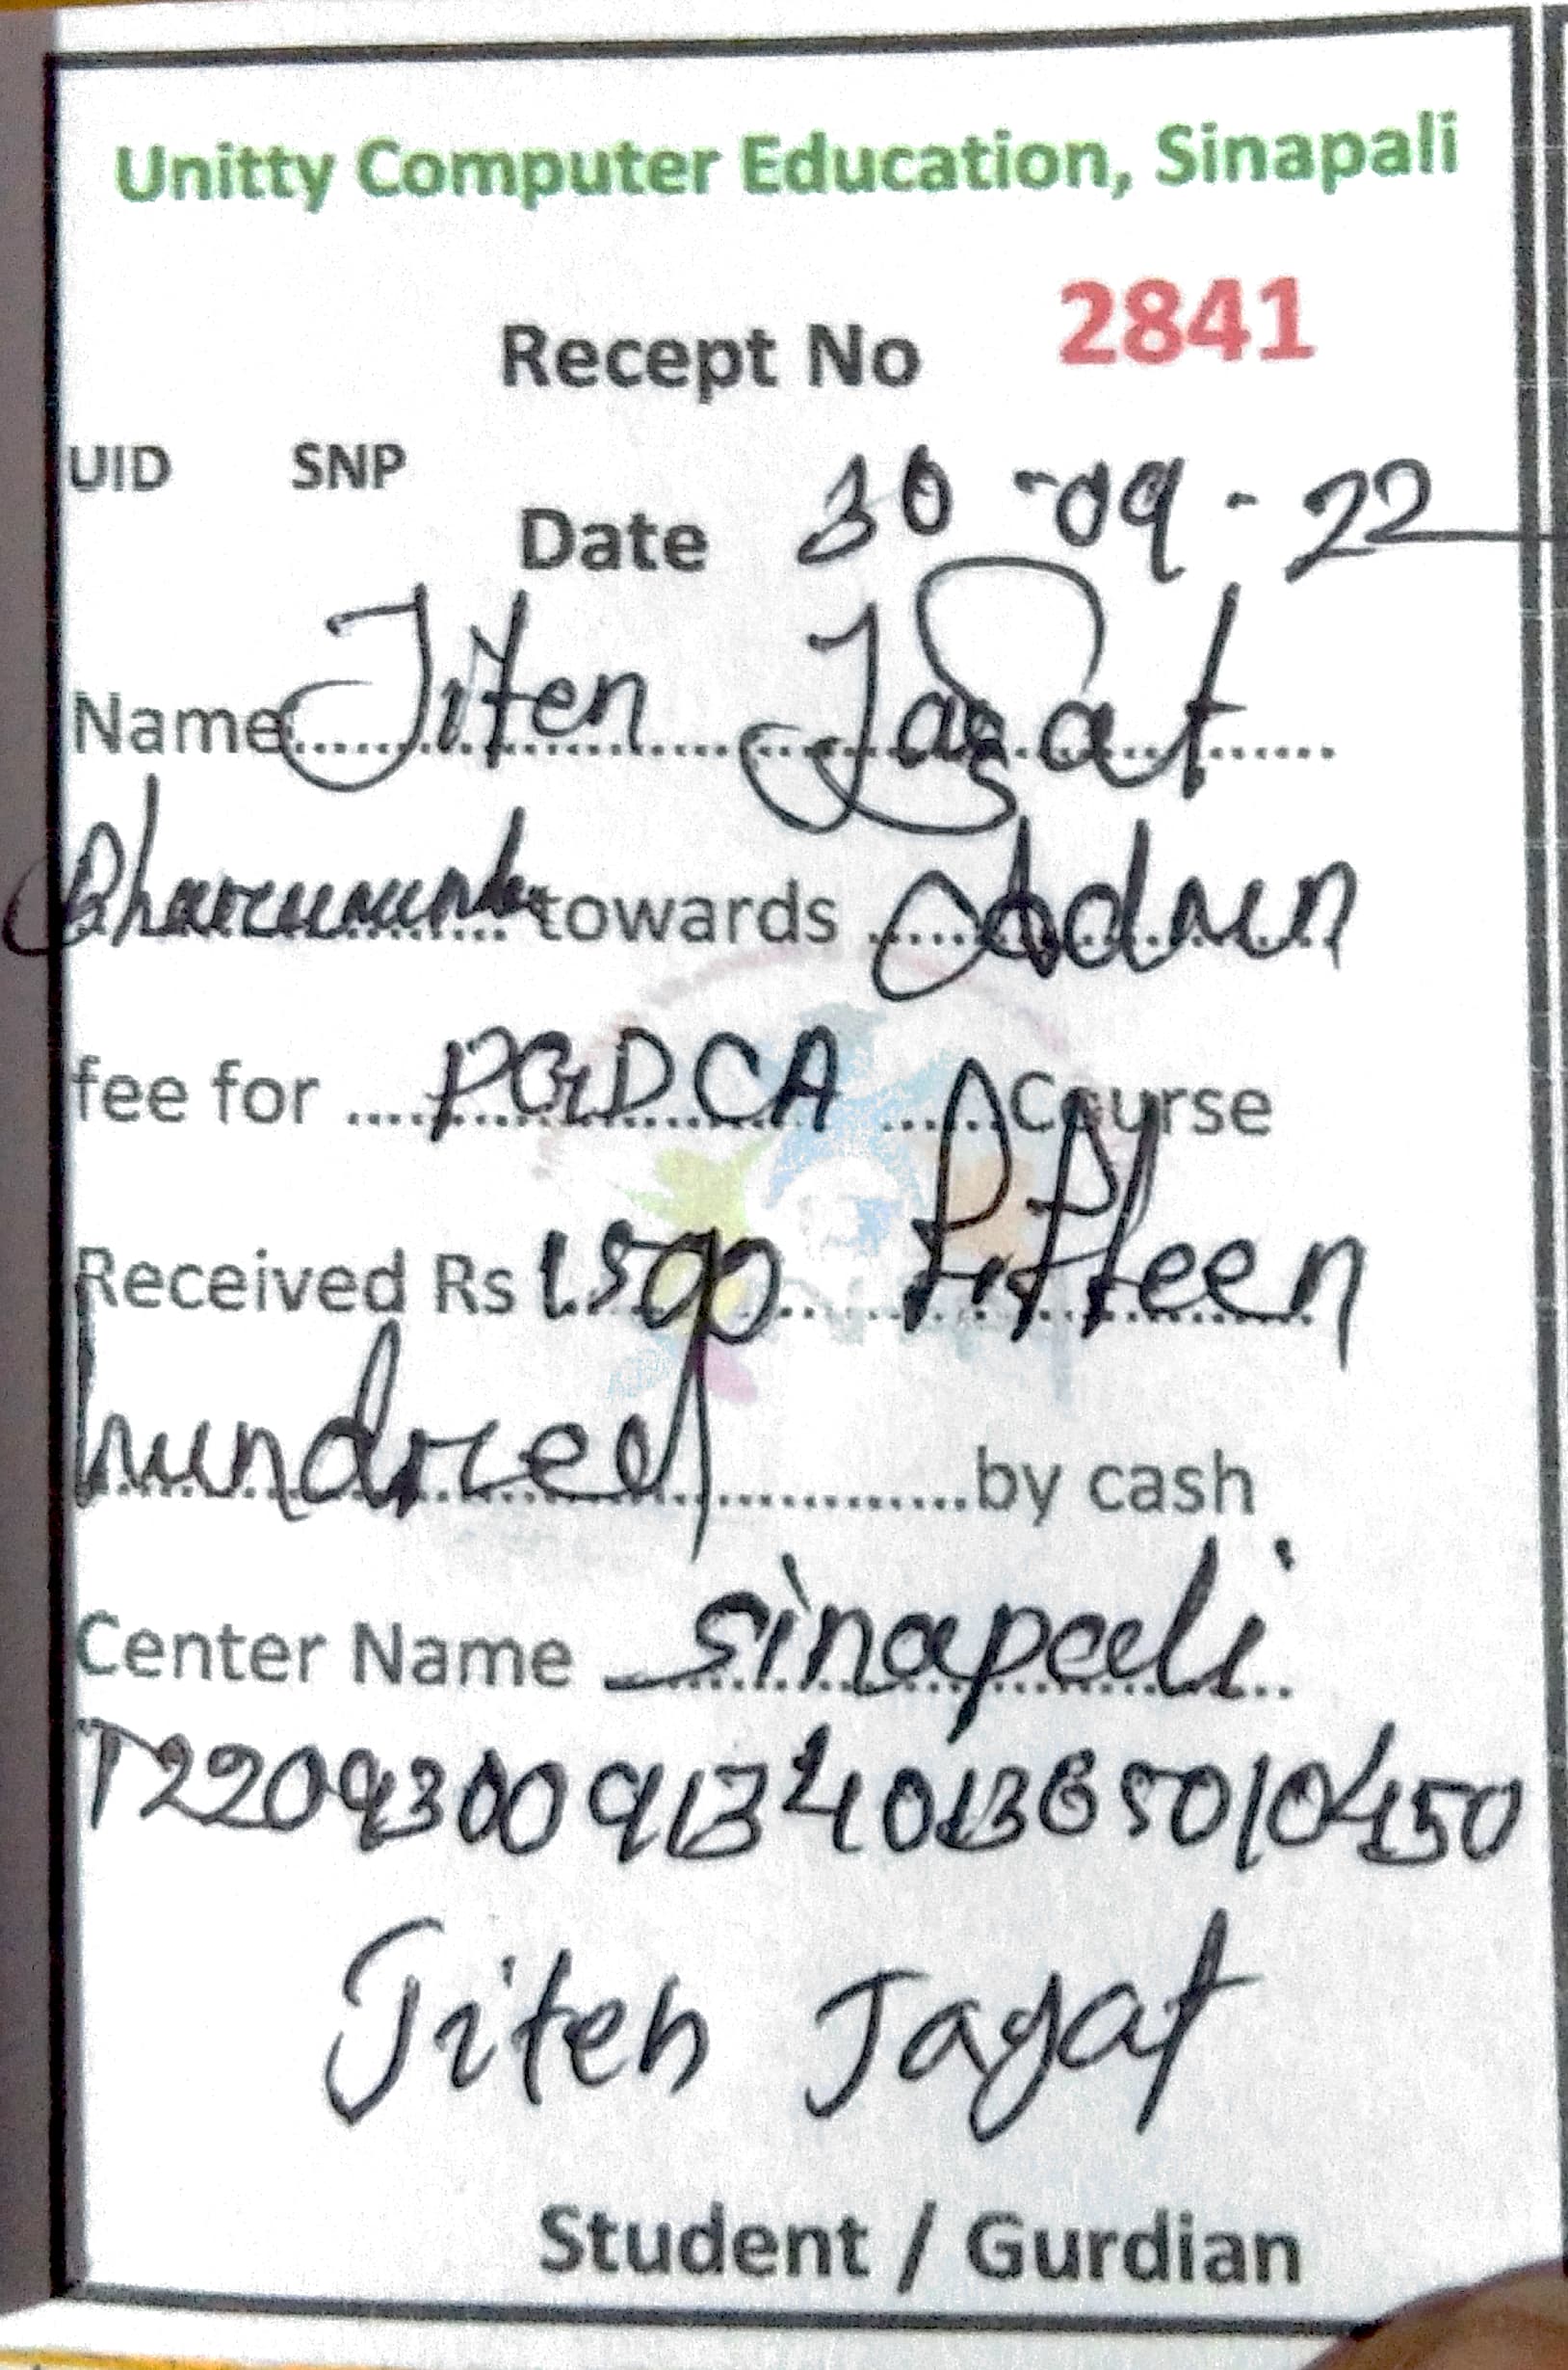 Unitty Computer Education, Sinapali
Recept No 2841
UID SNP
Date 30-09-22
Name Jiten Jagat
towards Admn
fee for PGDCA Course
Received Rs 1500 fifteen
hundred by cash
Center Name Sinapali
Jiten Jagat
Student / Gurdian